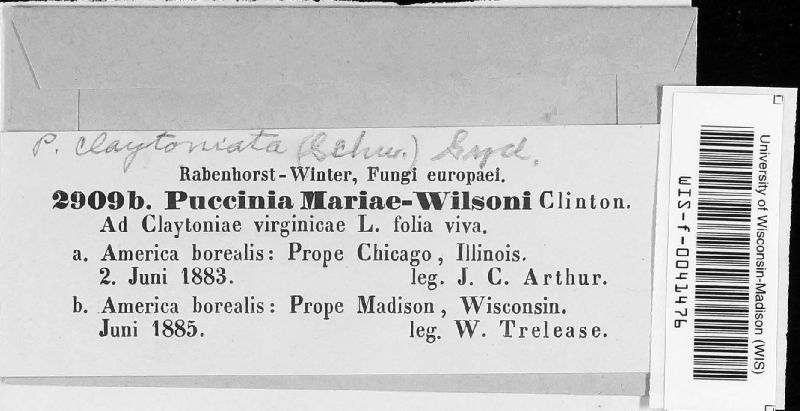 P. claytoniata (Schw.) Syd.
Rabenhorst-Winter, Fungi europaei.
2909b. Puccinia Mariae-Wilsoni Clinton.
Ad Claytoniae virginicae L. folia viva.
a. America borealis: Prope Chicago, Illinois.
2. Juni 1883. leg. J. C. Arthur.
b. America borealis: Prope Madison, Wisconsin.
Juni 1885. leg. W. Trelease.
University of Wisconsin-Madison (WIS)
WIS-f-0041476